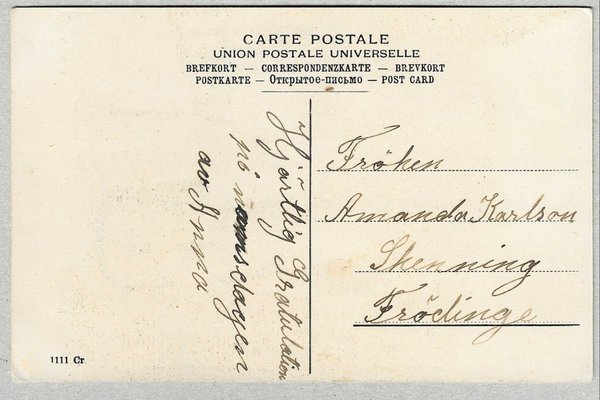 CARTE POSTALE
UNION POSTALE UNIVERSELLE
BREFKORT — CORRESPONDENZKARTE — BREVKORT
POSTKARTE — Открытое-письмо — POST CARD
Hjärtlig Gratulation
på namnsdagen
av Anna
Fröken
Amanda Karlson
Skenning
Frödinge
1111 Cr.